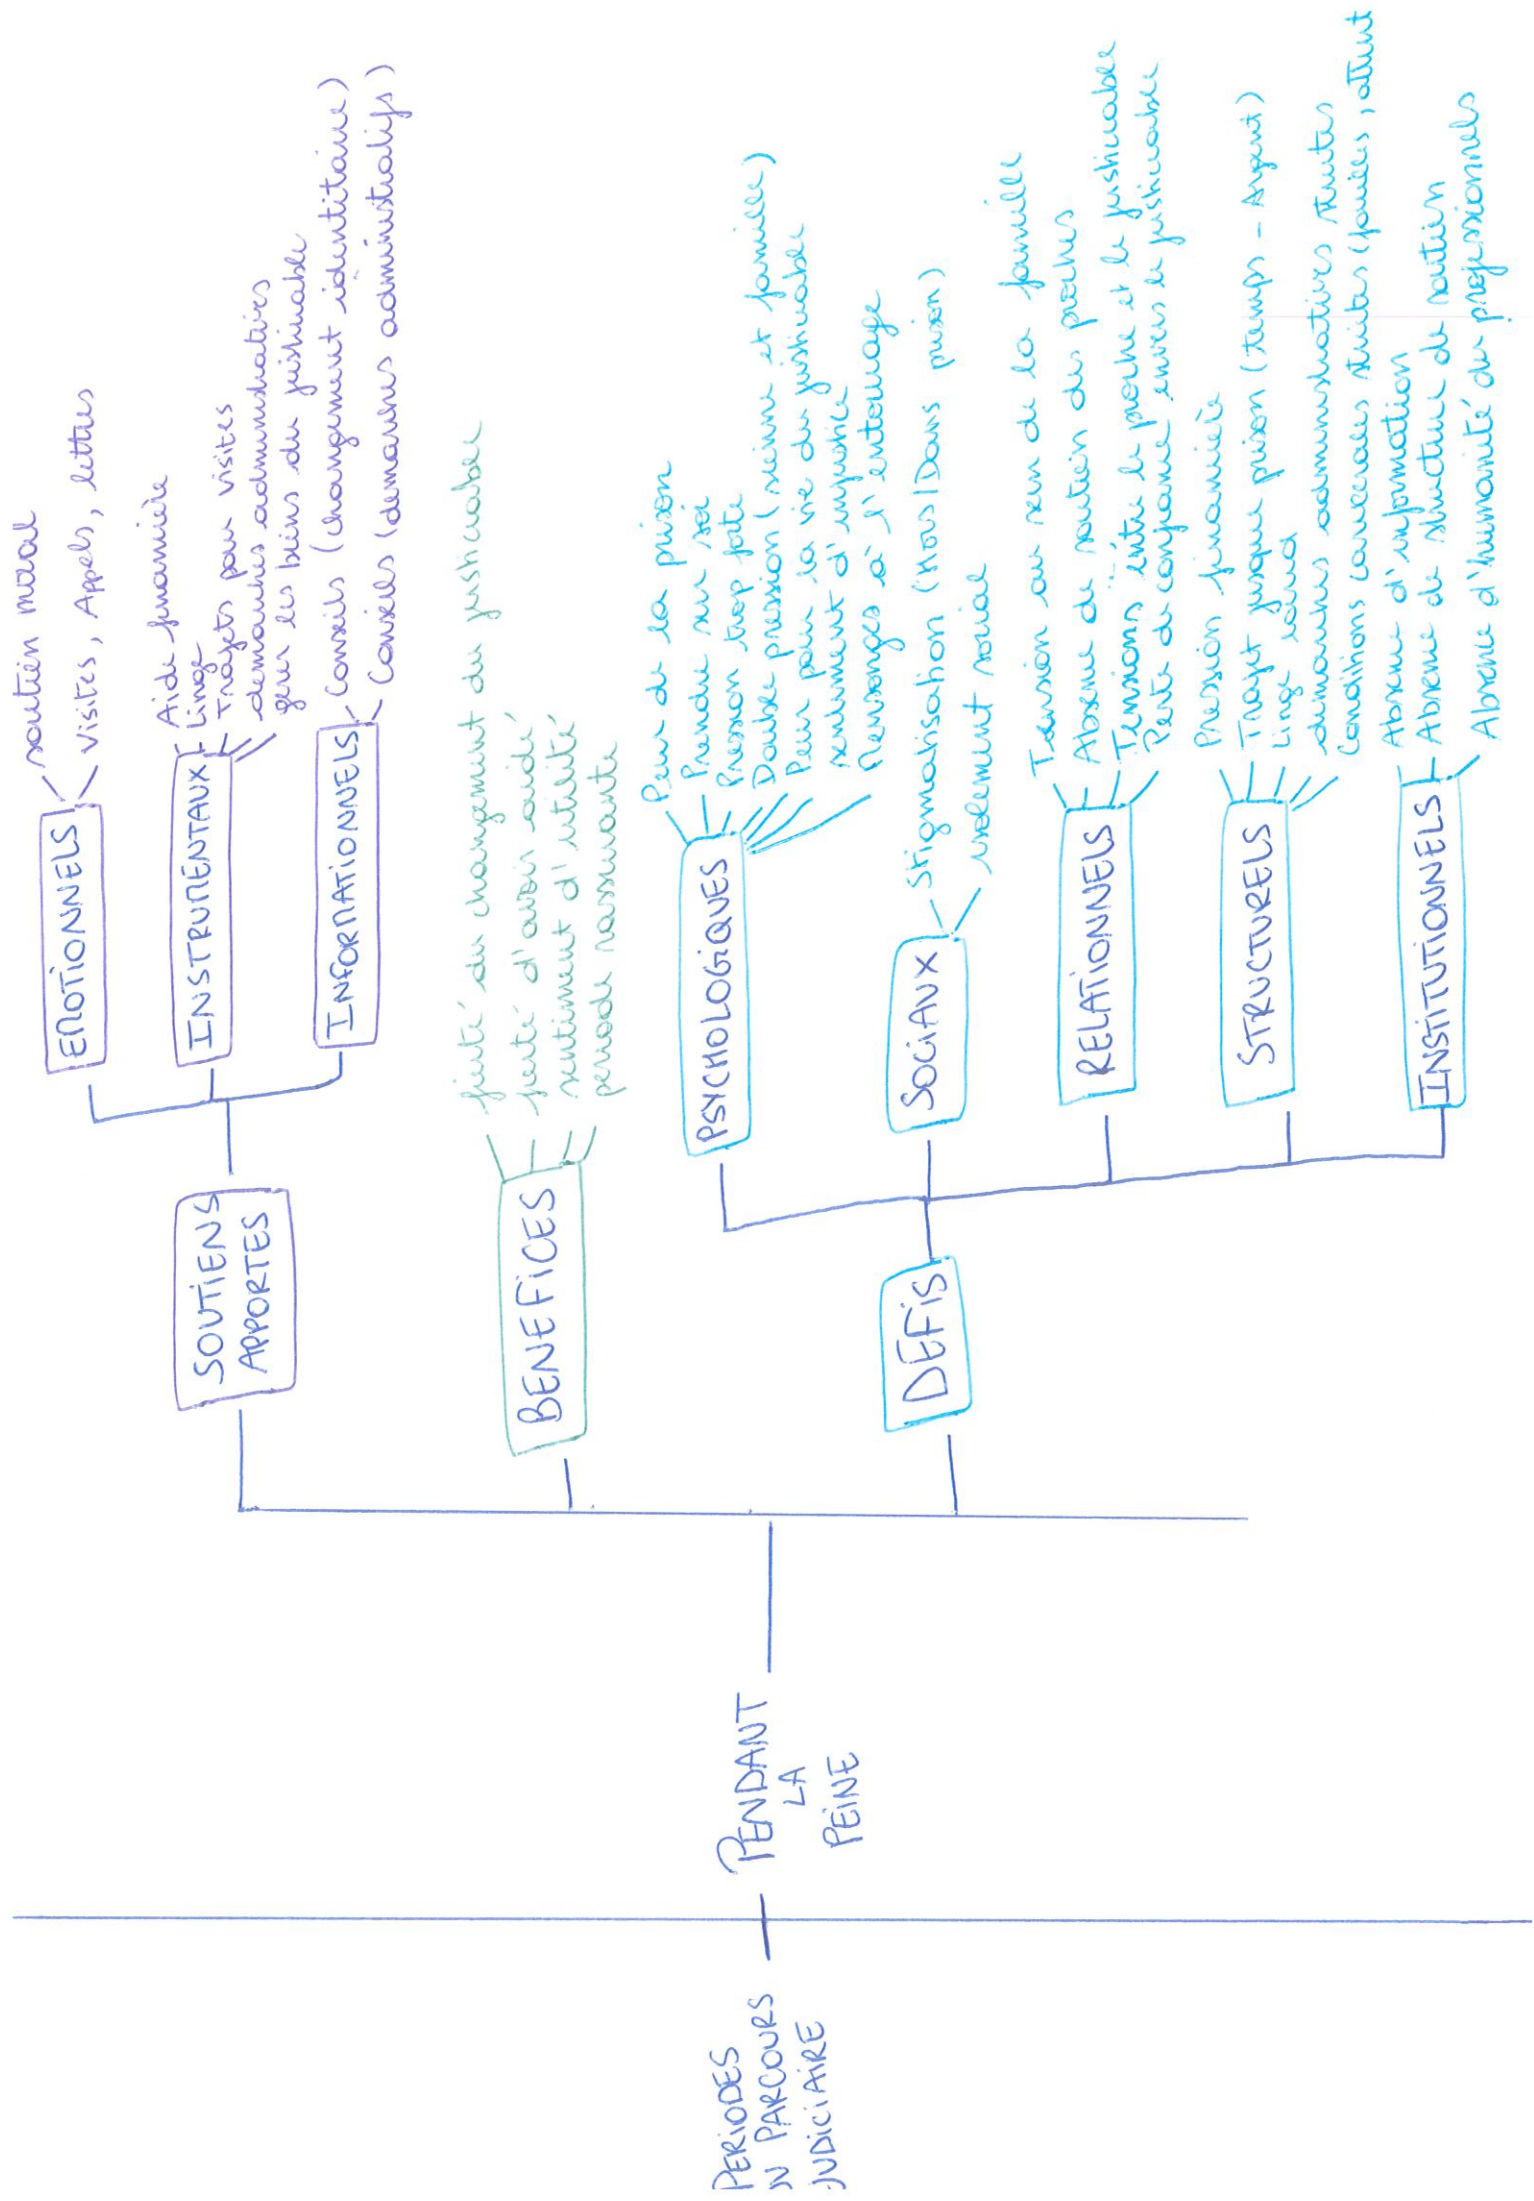 PERIODES
DU PARCOURS
JUDICIAIRE
PENDANT
LA
PEINE
SOUTIENS
APPORTES
EMOTIONNELS
soutien moral
visites, Appels, lettres
INSTRUMENTAUX
Aide financière
Linge
Trajets pour visites
demarches administratives
gerer les biens du justiciable
INFORMATIONNELS
Conseils (changement identitaire)
Conseils (demarches administratifs)
BENEFICES
fierté du changement du justiciable
fierté d'avoir aidé
sentiment d'utilité
periode rassurante
DEFIS
PSYCHOLOGIQUES
Peur de la prison
Prendre sur soi
Pression trop forte
Double pression (sienne et famille)
Peur pour la vie du justiciable
sentiment d'injustice
Mensonges à l'entourage
SOCIAUX
Stigmatisation (Hors/Dans prison)
isolement social
RELATIONNELS
Tension au sein de la famille
Absence de soutien des proches
Tensions entre le proche et le justiciable
Perte de confiance envers le justiciable
STRUCTURELS
Pression financière
Trajet jusque prison (temps - Argent)
Linge lourd
demarches administratives strictes
Conditions carcerales strictes (fouilles, attent
INSTITUTIONNELS
Absence d'information
Absence de structure de soutien
Absence d'humanité du professionnels